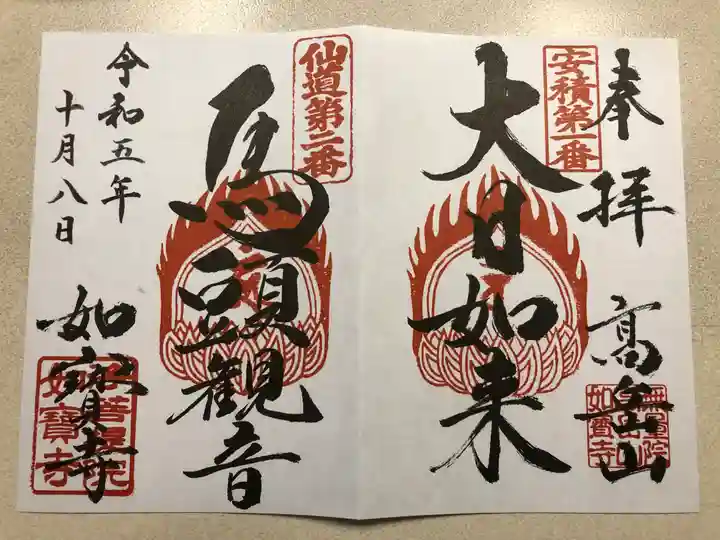 奉拝
高岳山
安積第一番
大日如来
仙道第二番
馬頭観音
令和五年
十月八日
如寳寺
如寳寺
如寳寺